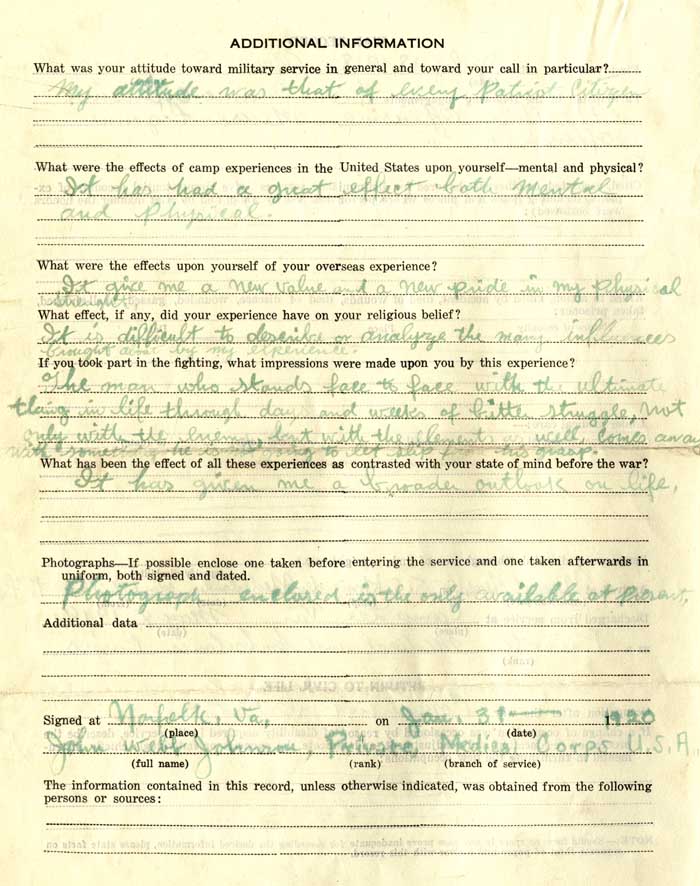 ADDITIONAL INFORMATION
What was your attitude toward military service in general and toward your call in particular?
My attitude was that of every Patriot Citizen
What were the effects of camp experiences in the United States upon yourself—mental and physical?
It has had a great effect both Mental
and Physical.
What were the effects upon yourself of your overseas experience?
It give me a new value and a new pride in my Physical
strenght
What effect, if any, did your experience have on your religious belief?
It is difficult to describe or analyze the many influences
brought about by my experience.
If you took part in the fighting, what impressions were made upon you by this experience?
The man who stands face to face with the ultimate
thing in life through days and weeks of bitter struggle, not
only with the enemy, but with the elements as well, comes away
with something he is not going to let slip from his grasp.
What has been the effect of all these experiences as contrasted with your state of mind before the war?
It has given me a broader outlook on life,
Photographs—If possible enclose one taken before entering the service and one taken afterwards in
uniform, both signed and dated.
Photograph enclosed is the only available at present,
Additional data
Signed at Norfolk, Va, on Jan. 31 1920
(place) (date)
John Webb Johnson, Private Medical Corps U.S.A.
(full name) (rank) (branch of service)
The information contained in this record, unless otherwise indicated, was obtained from the following
persons or sources: